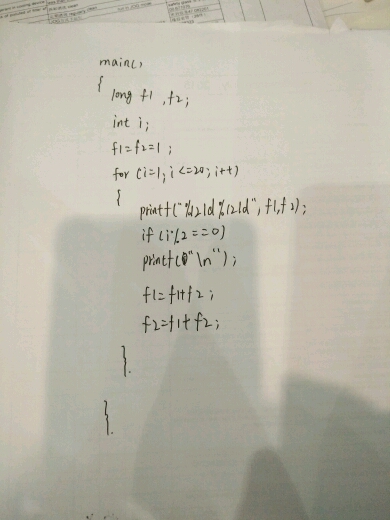 main()
{
long f1, f2;
int i;
f1=f2=1;
for (i=1; i<=20; i++)
{
printf("%12ld%12ld", f1, f2);
if (i%2==0)
printf("\n");
f1=f1+f2;
f2=f1+f2;
}.
}.